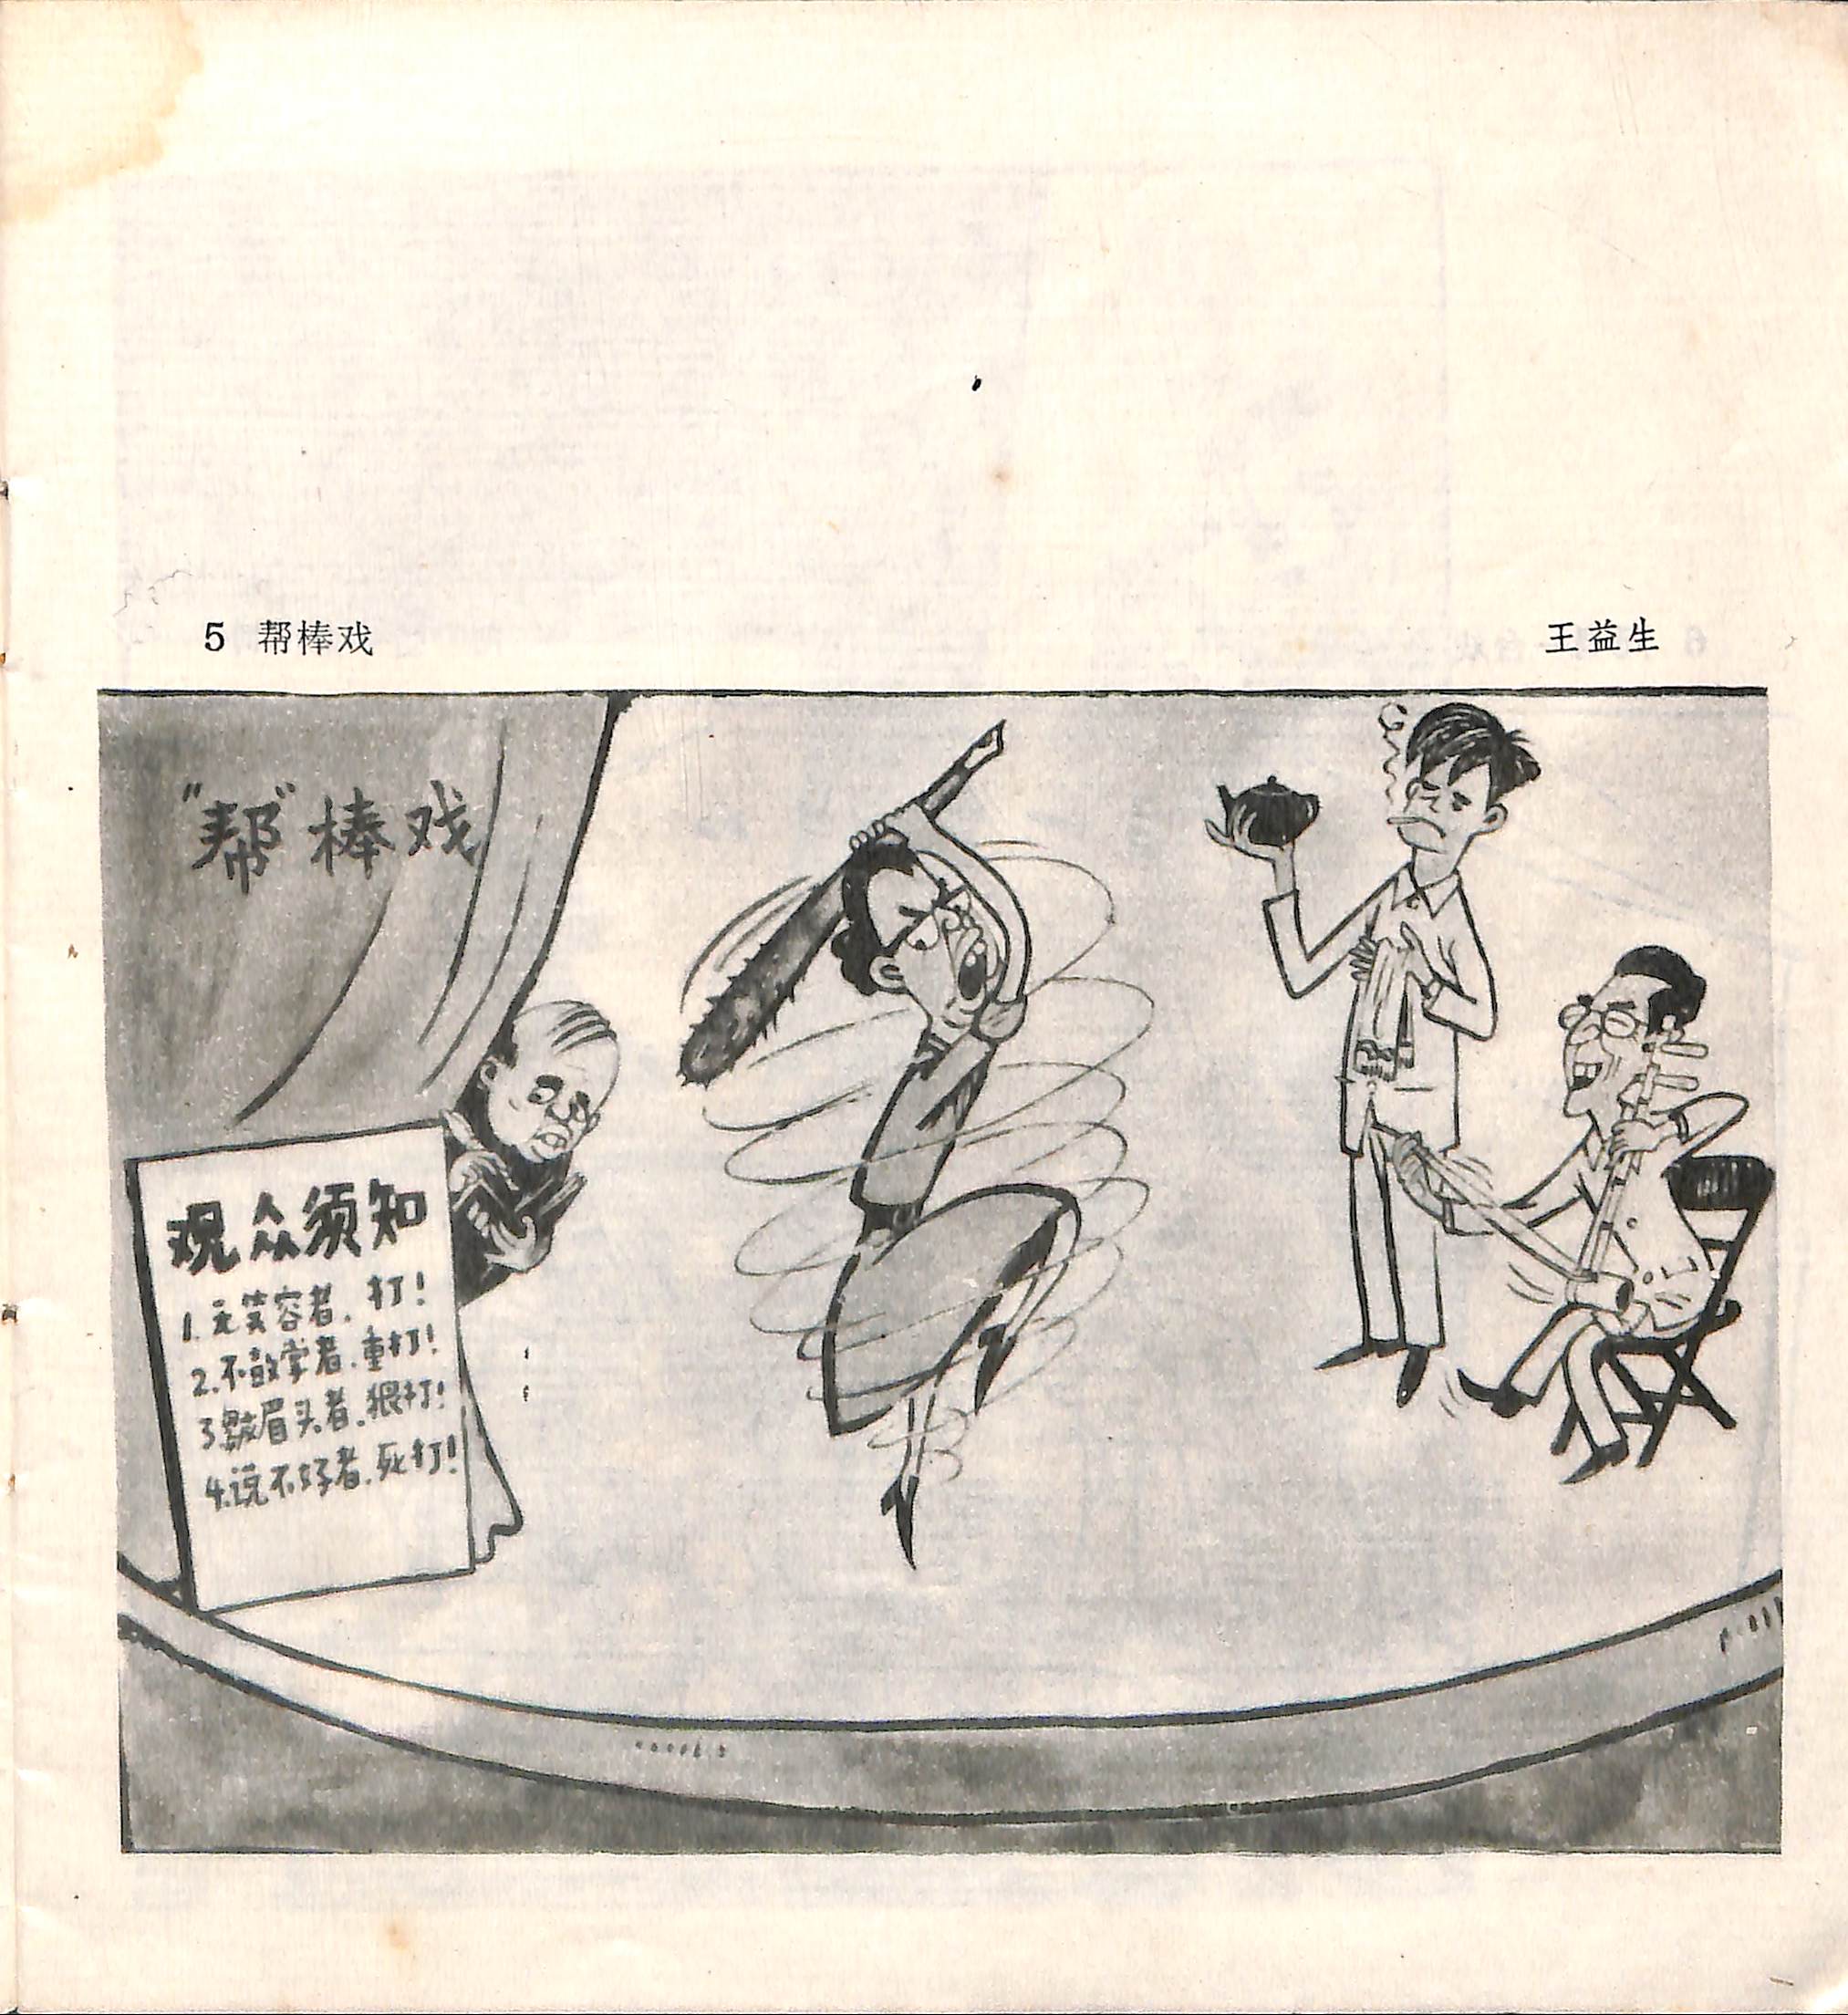 5 帮棒戏
王益生
"帮"棒戏
观众须知
1. 无笑容者、打!
2. 不鼓掌者、重打!
3 皱眉头者、狠打!
4. 说不好者、死打!